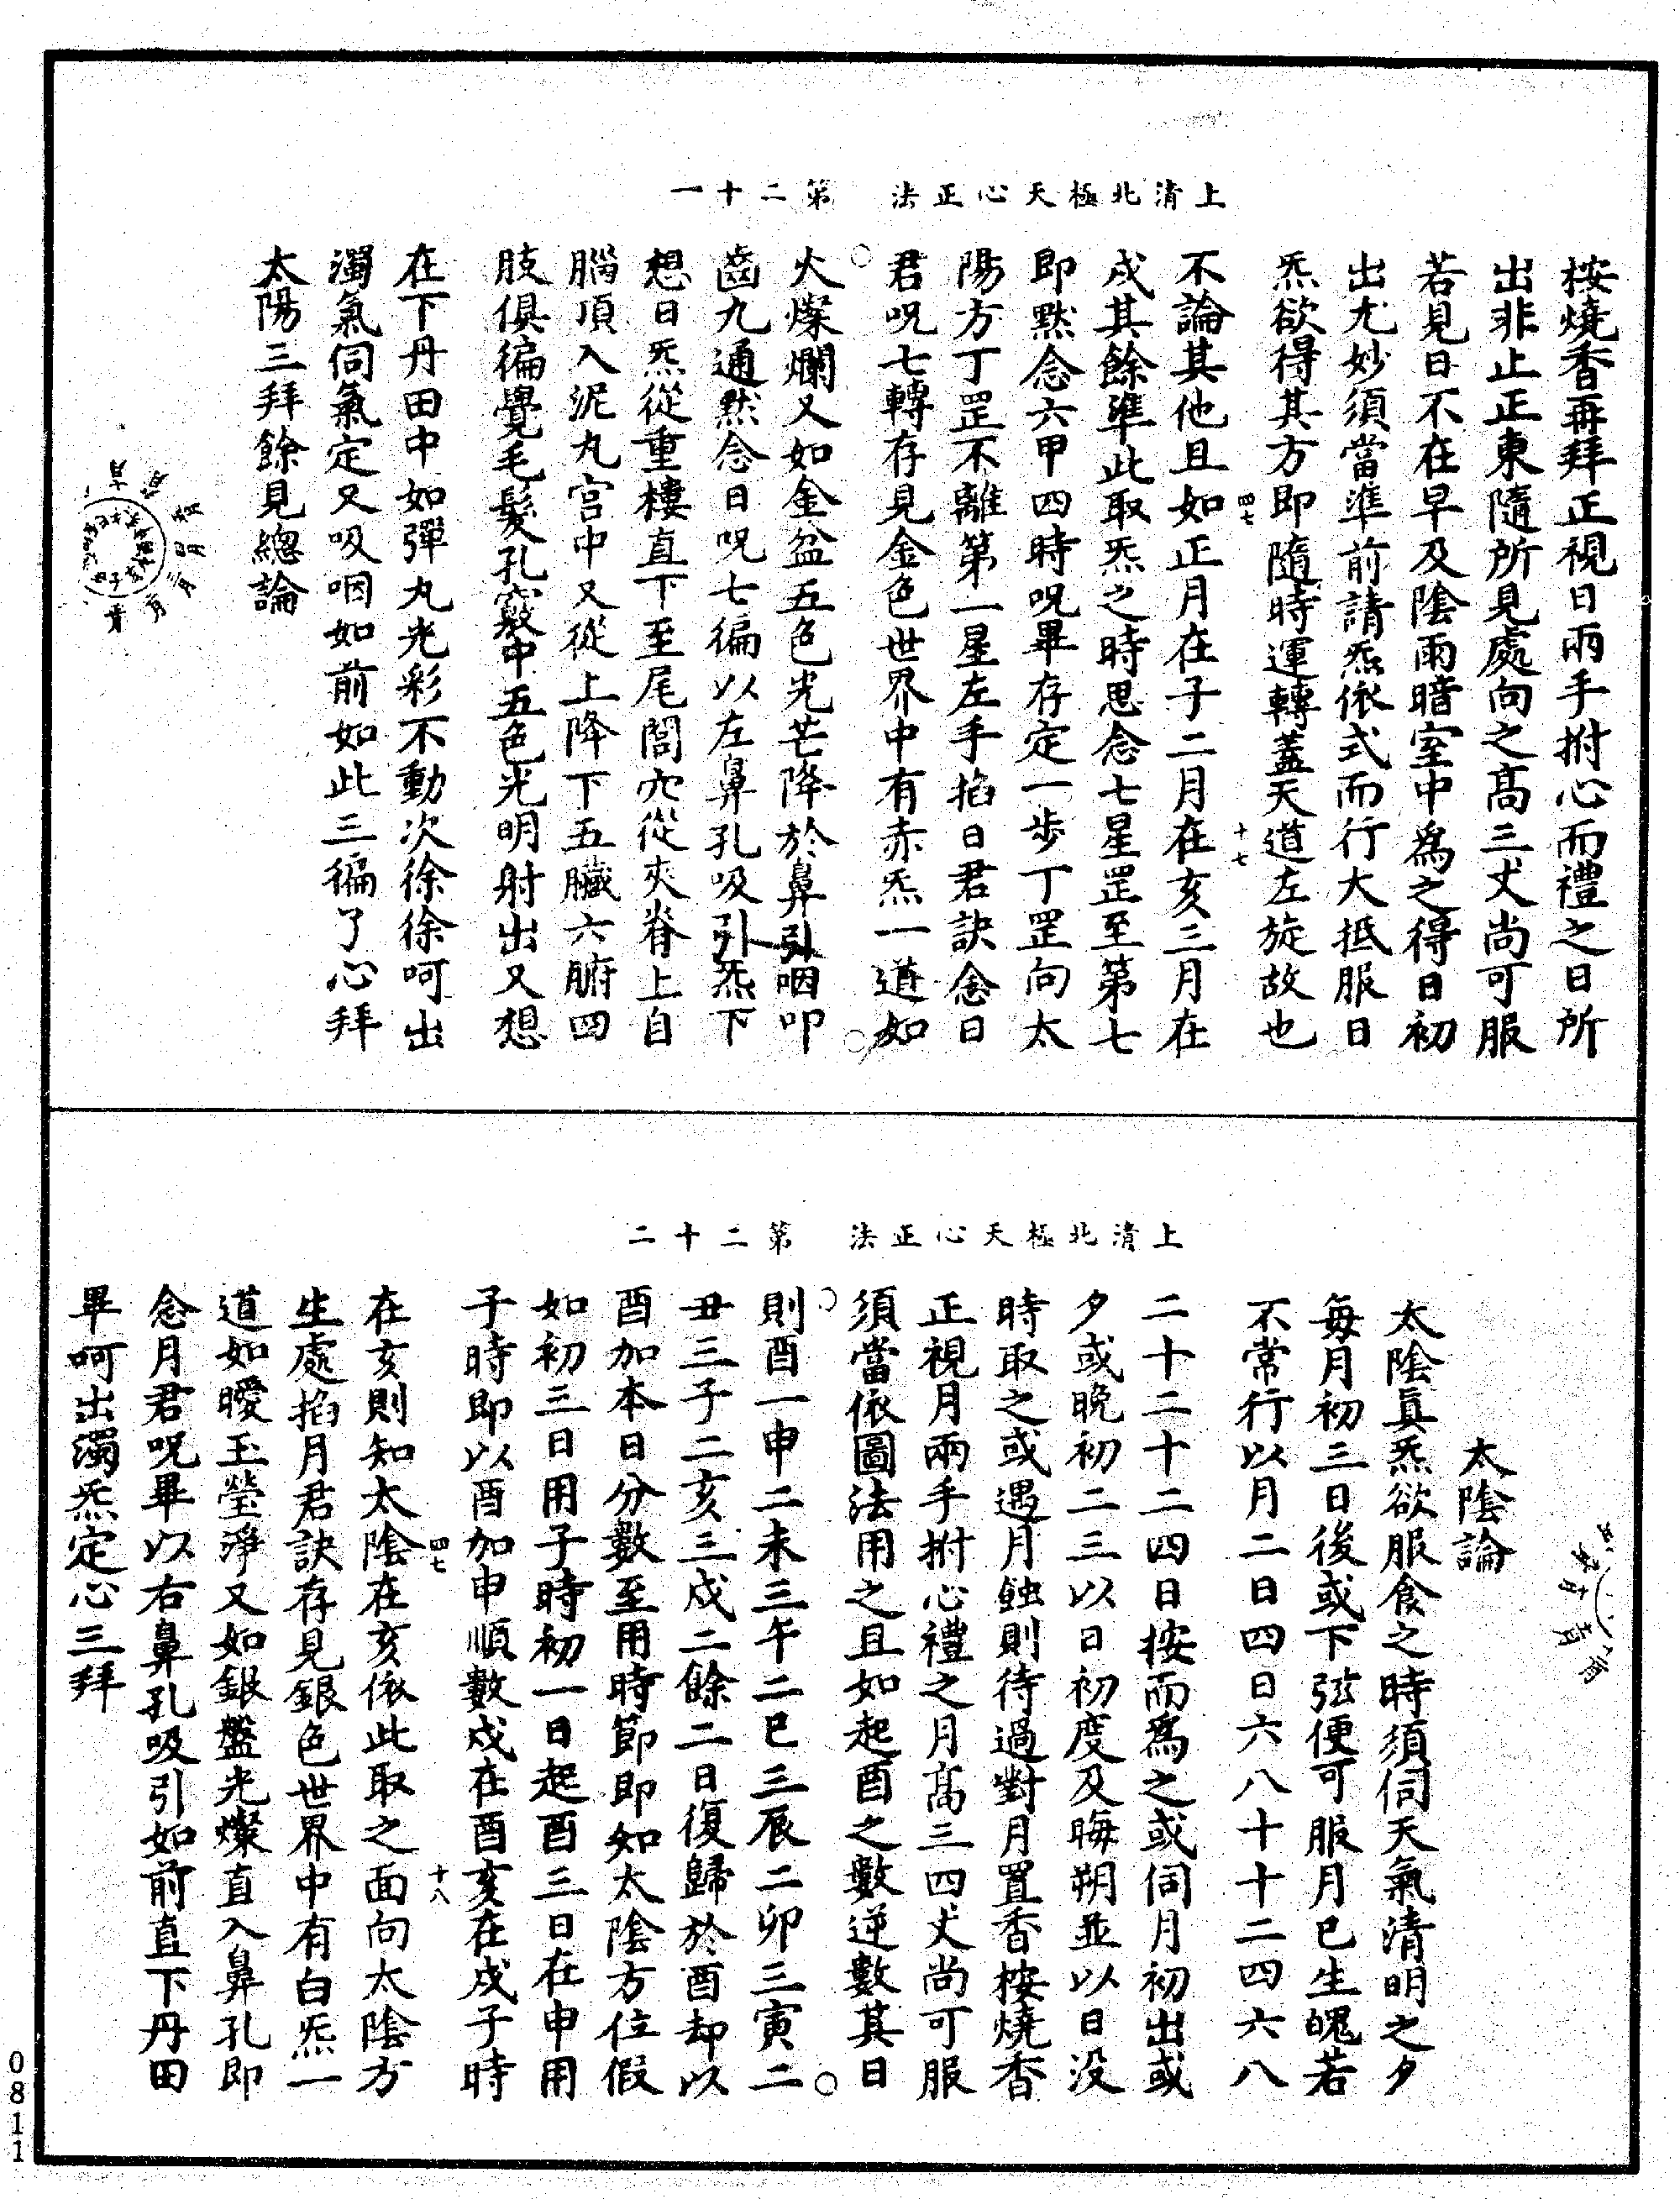 上清北極天心正法　第二十一
桉燒香再拜正視日兩手拊心而禮之日所
出非止正東隨所見處向之髙三丈尚可服
若見日不在早及隂雨暗室中爲之得日初
出尤妙須當準前請炁依式而行大抵服日
炁欲得其方即隨時運轉蓋天道左旋故也
四七
十七
不論其他且如正月在子二月在亥三月在
戍其餘準此取炁之時思念七星罡至第七
即黙念六甲四時呪畢存定一步丁罡向太
陽方丁罡不離第一星左手掐日君訣念日
君呪七轉存見金色世界中有赤炁一道如
火燦爛又如金盆五色光芒降於鼻引咽叩
齒九通黙念日呪七徧以左鼻孔吸引炁下
想日炁從重樓直下至尾閭穴從夾脊上自
腦頂入泥丸宫中又從上降下五臟六腑四
肢俱徧覺毛髮孔竅中五色光明射出又想
在下丹田中如彈丸光彩不動次徐徐呵出
濁氣伺氣定又吸咽如前如此三徧了心拜
太陽三拜餘見緫論
上清北極天心正法　第二十二
太隂論
太隂眞炁欲服食之時須伺天氣清明之夕
每月初三日後或下弦便可服月巳生魄若
不常行以月二日四日六八十十二四六八
二十二十二四日按而爲之或伺月初出或
夕或晚初二三以日初度及晦朔並以日没
時取之或遇月蝕則待過對月置香桉燒香
正視月兩手拊心禮之月髙三四丈尚可服
須當依圖法用之且如起酉之數逆數其日
則酉一申二未三午二巳三辰二卯三寅二
丑三子二亥三戍二餘二日復歸於酉却以
酉加本日分數至用時節即知太陰方位假
如初三日用子時初一日起酉三日在申用
子時即以酉加申順數戍在酉亥在戍子時
四七
十八
在亥則知太陰在亥依此取之面向太陰方
生處掐月君訣存見銀色世界中有白炁一
道如曖玉瑩淨又如銀盤光燦直入鼻孔即
念月君呪畢以右鼻孔吸引如前直下丹田
畢呵出濁炁定心三拜
0811